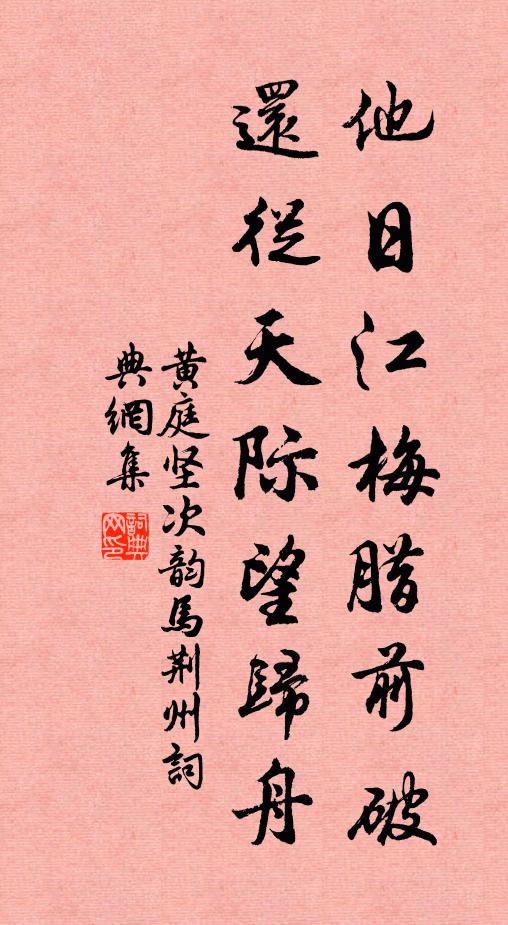 他日江梅腊前破
還從天际望歸舟
黄庭坚次韵馬荆州詞
典網集
詞典网印